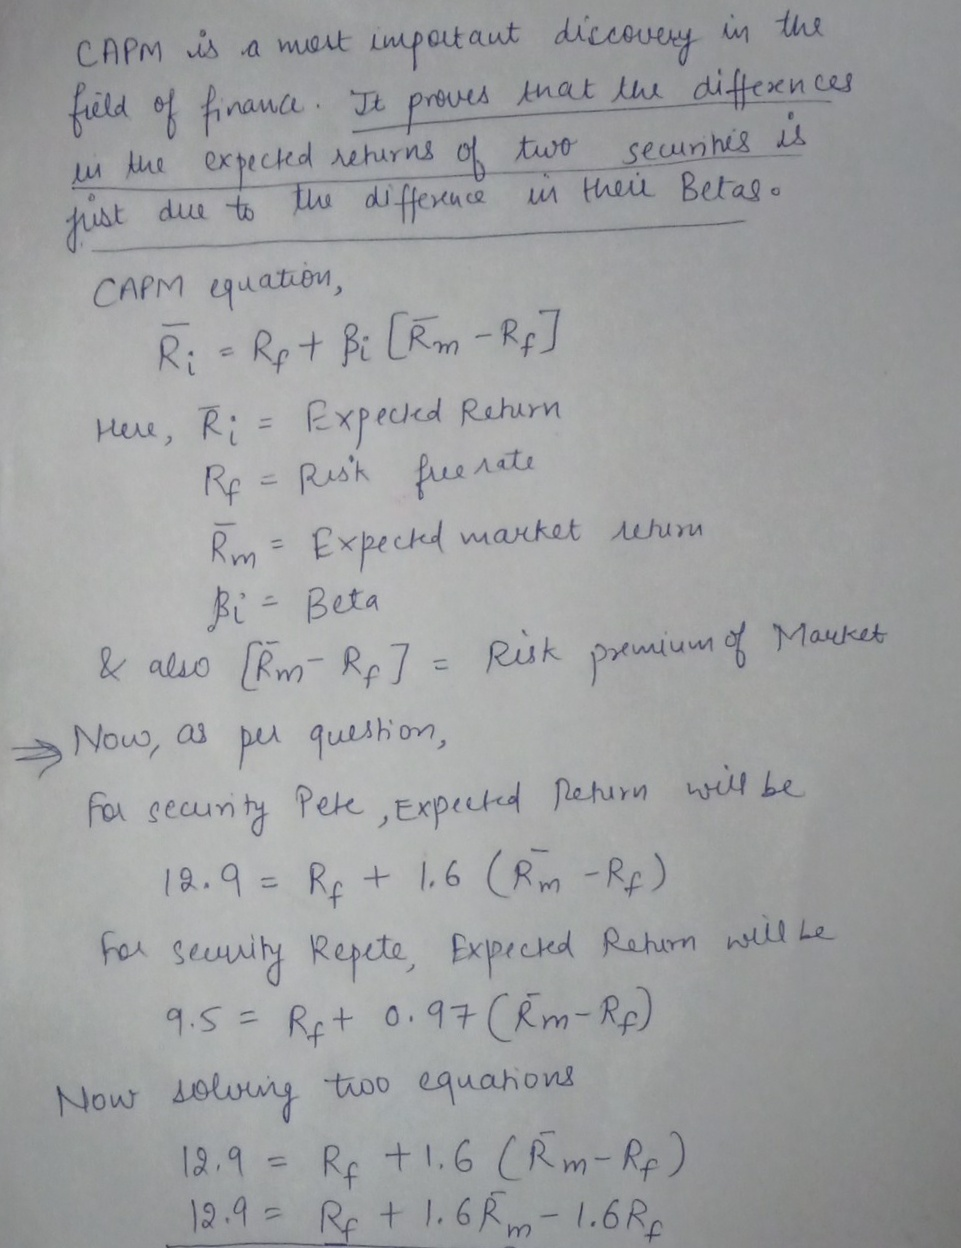 CAPM is a most important discovery in the
field of finance. It proves that the differences
in the expected returns of two securities is
just due to the difference in their Betas.
CAPM equation,
R̄i = Rf + βi [R̄m - Rf]
Here, R̄i = Expected Return
Rf = Risk free rate
R̄m = Expected market return
βi = Beta
& also [R̄m - Rf] = Risk premium of Market
⇒ Now, as per question,
For security Pete, Expected Return will be
12.9 = Rf + 1.6 (R̄m - Rf)
For security Repete, Expected Return will be
9.5 = Rf + 0.97 (R̄m - Rf)
Now solving two equations
12.9 = Rf + 1.6 (R̄m - Rf)
12.9 = Rf + 1.6 R̄m - 1.6 Rf